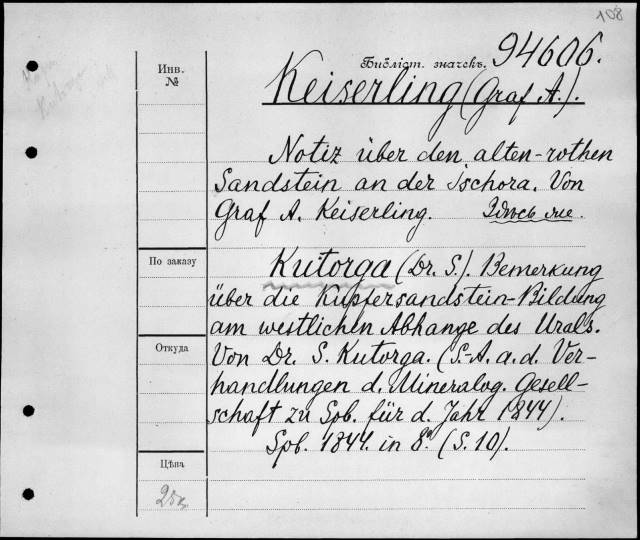 108
Библіот. значекъ. 94606.
Инв. №
Keiserling (Graf A.).
Notiz über den alten-rothen
Sandstein an der Ischora. Von
Graf A. Keiserling. Здѣсь же.
По заказу
Kutorga (Dr. S.). Bemerkung
über die Kupfersandstein-Bildung
am westlichen Abhange des Urals.
Откуда
Von Dr. S. Kutorga. (S.-A. a. d. Ver-
handlungen d. Mineralog. Gesell-
schaft zu Spb. für d. Jahr 1844).
Spb. 1844. in 8º (S. 10).
Цѣна